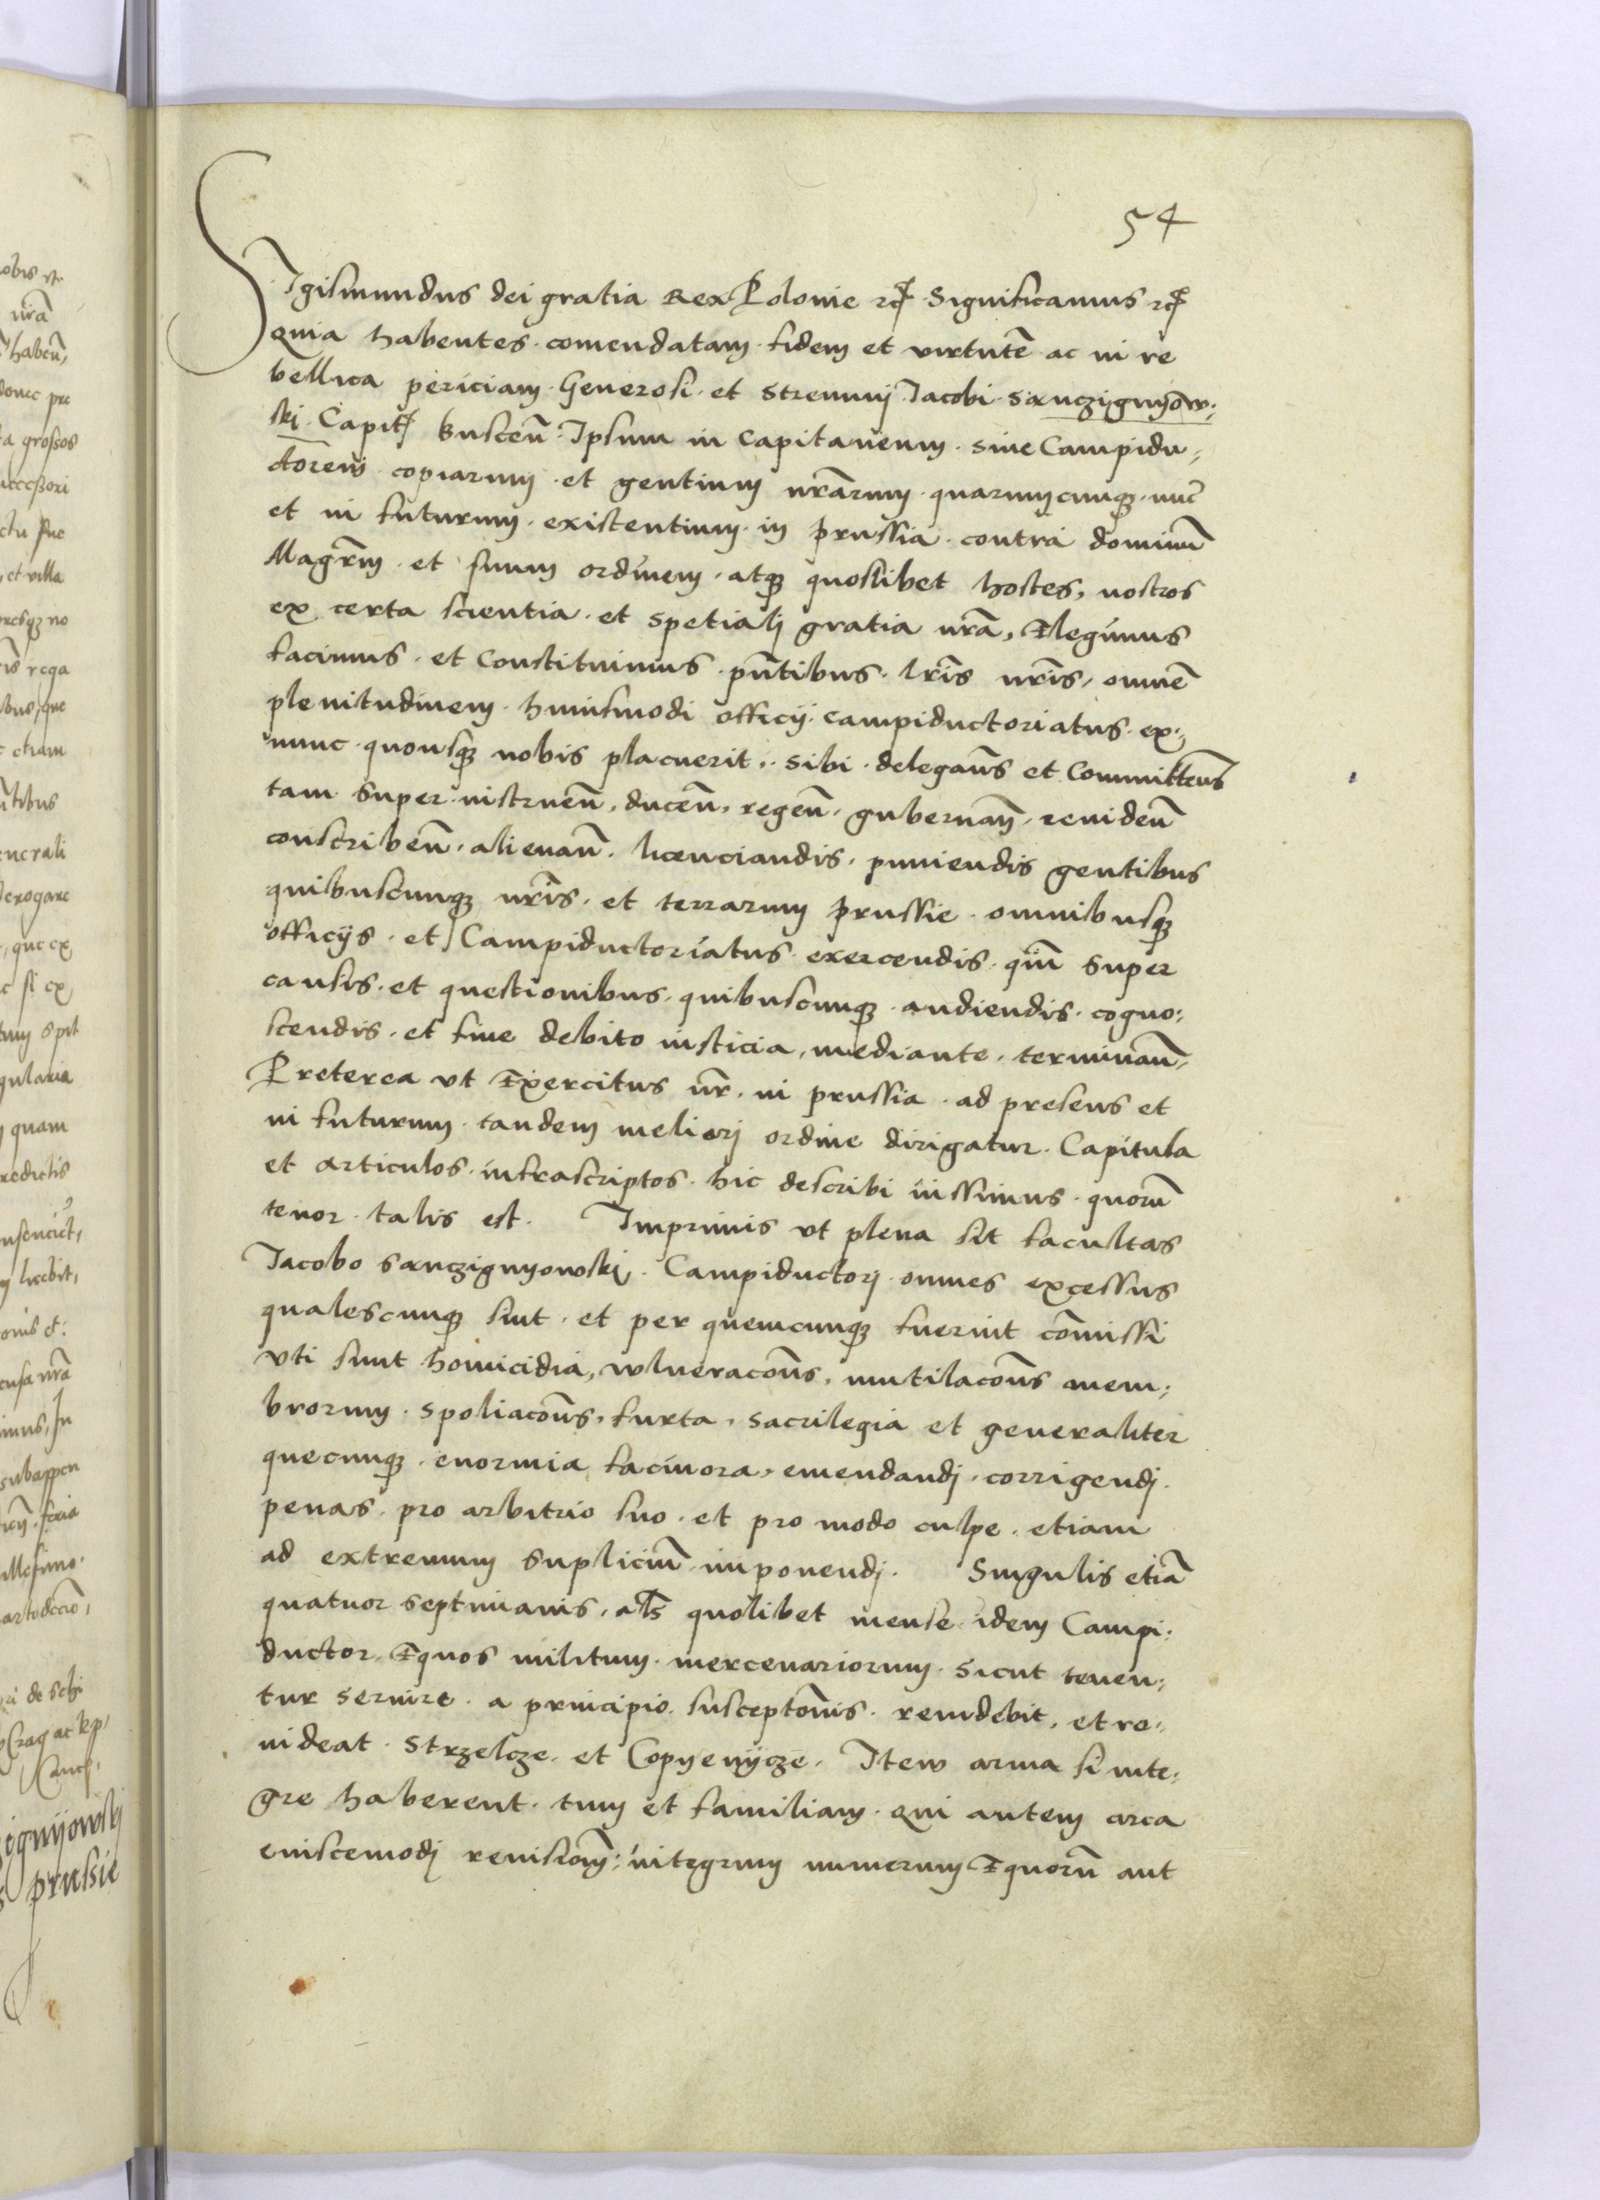 54
Sigismundus dei gratia Rex Polonie etc Significamus etc
Quia habentes comendatam fidem et virtutē ac in re
bellica periciam Generosi et Strenuij Jacobi Sanczignyow:
ski Capit Buscen̄ Ipsum in Capitaneum siue Campidu:
ctorem copiarum et gentium nr̄arum quarumcunqꝫ nūc
et in futurum existentium in prussia contra dominū
Magr̄m et suum ordinem atqꝫ quoslibet hostes, nostros
ex certa scientia et spetialj gratia nr̄a, Elegimus
facimus et Constituimus pn̄tibus lr̄is nr̄is, omnē
plenitudinem huiusmodi officij campiductoriatus ex:
nunc quousqꝫ nobis placuerit, sibi delegan̄s et Committen̄s
tam super instruen̄, ducen̄, regen̄, gubernan̄, reuiden̄
conscriben̄, alienan̄, licenciandis, puniendis gentibus
quibuscunqꝫ nr̄is et terrarum prussie omnibusqꝫ
officijs et Campiductoriatus exercendis qm̄ super
causis et questionibus quibuscunqꝫ audiendis cogno:
scendis et fine debito iusticia, mediante, terminan̄,
Preterea vt Exercitus nr̄ in prussia ad presens et
in futurum tandem meliorj ordine dirigatur Capitula
et articulos infrascriptos hic describi iussimus quorū
tenor talis est. Imprimis vt plena sit facultas
Jacobo Sanczignyowskj Campiductorj omnes excessus
qualescunqꝫ sint et per quemcunqꝫ fuerint cōmissi
vti sunt homicidia, vulneracōns, mutilacōns mem:
brorum spoliacōns, furta, sacrilegia et generaliter
quecunqꝫ enormia facinora, emendandj corrigendj
penas pro arbitrio suo et pro modo culpe etiam
ad extremum supliciū imponendj. Singulis etiā
quatuor septimanis, al̄s quolibet mense idem Campi:
ductor Equos militum mercenariorum sicut tenen:
tur seruire a principio susceptōnis reuidebit, et re:
uideat Strzelcze et Copyenycze. Item arma si inte:
gre haberent tum et familiam Qui autem circa
euiscemodj reuisionē: integrum numerum Equorū aut